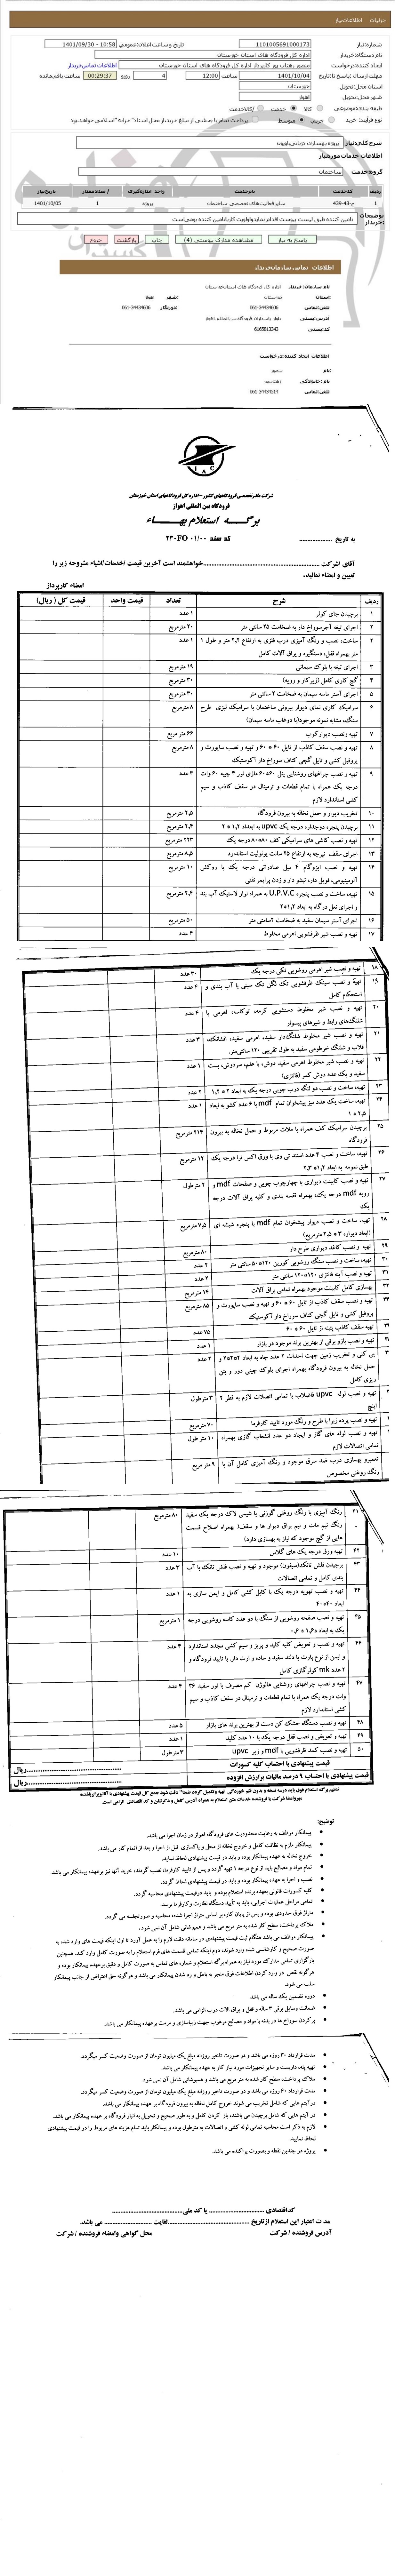 جزئیات اطلاعات نیاز
شماره نیاز: 1101005691000173
تاریخ و ساعت اعلان عمومی: 1401/09/30 - 10:58
نام دستگاه خریدار: اداره کل فرودگاه های استان خوزستان
ایجاد کننده درخواست: منصور رهتاب پور کارپرداز اداره کل فرودگاه های استان خوزستان
اطلاعات تماس خریدار
مهلت ارسال پاسخ: تا تاریخ: 1401/10/04 ساعت 12:00
4 روز و 00:29:37 ساعت باقی مانده
استان محل تحویل: خوزستان
شهر محل تحویل: اهواز
طبقه بندی موضوعی: کالا خدمت کالا/خدمت
نوع فرآیند خرید: جزیی متوسط پرداخت تمام یا بخشی از مبلغ خرید، از محل "اسناد خزانه اسلامی" خواهد بود.
شرح کلی نیاز: پروژه بهسازی دژبانی پاویون
اطلاعات خدمات مورد نیاز
گروه خدمت: ساختمان
ردیف کد خدمت نام خدمت واحد اندازه گیری تعداد / مقدار تاریخ نیاز
1 ج-43-439 سایر فعالیت‌های تخصصی ساختمان پروژه 1 1401/10/05
توضیحات خریدار: تامین کننده طبق لیست پیوست اقدام نماید. واولویت کار با تامین کننده بومی است
پاسخ به نیاز مشاهده مدارک پیوستی (4) چاپ بازگشت خروج
اطلاعات تماس سازمان خریدار
نام سازمان خریدار: اداره کل فرودگاه های استان خوزستان
استان: خوزستان شهر: اهواز
تلفن تماس: 34434600-061 دورنگار: 34434600-061
کد پستی: 6165813343
اطلاعات ایجاد کننده درخواست
نام: منصور
نام خانوادگی: رهتاب پور
تلفن تماس: 34434514-061
IAC
شرکت مادر تخصصی فرودگاههای کشور - اداره کل فرودگاههای استان خوزستان
فرودگاه بین المللی اهواز
برگه استعلام بهاء
به تاریخ
کد سند ۲۳۰FO ۰۱/۰۰
آقای /شرکت خواهشمند است آخرین قیمت /خدمات/اشیاء مشروحه زیر را
تعیین و امضاء نمائید.
امضاء کارپرداز
ردیف شرح تعداد قیمت واحد قیمت کل ( ریال)
۱ برچیدن جای کولر ۱ عدد
۲ اجرای تیغه آجرسوراخ دار به ضخامت ۲۵ سانتی متر ۲۰ مترمربع
۲ ساخت، نصب و رنگ آمیزی درب فلزی به ارتفاع ۲,۲ متر و طول ۱ ۱ عدد
متر بهمراه قفل، دستگیره و یراق آلات کامل
۳ اجرای تیغه با بلوک سیمانی ۱۹ مترمربع
۴ گچ کاری کامل (زیرکار و رویه) ۳۰ مترمربع
۵ اجرای آستر ماسه سیمان به ضخامت ۲ سانتی متر ۳۰ مترمربع
۶ سرامیک کاری نمای دیوار بیرونی ساختمان با سرامیک لیزی طرح ۸ مترمربع
سنگ، مشابه نمونه موجود(با دوغاب ماسه سیمان)
۷ تهیه ونصب دیوارکوب ۶۶ متر مربع
۸ تهیه و نصب سقف کاذب از تایل ۶۰ * ۶۰ و تهیه و نصب ساپورت و ۸ مترمربع
پروفیل کشی و تایل گچی کناف سوراخ دار آکوستیک
۹ تهیه و نصب چراغهای روشنایی پنل ۶۰*۶۰ مازی نور ۴ چیپه ۶۰ وات ۳ عدد
درجه یک همراه با تمام قطعات و ترمینال در سقف کاذب و سیم
کشی استاندارد لازم
۱۰ تخریب دیوار و حمل نخاله به بیرون فرودگاه ۲,۵ مترمربع
۱۱ برچیدن پنجره دوجداره درجه یک upvc به ابعداد ۱,۲ * ۲ ۲,۴ مترمربع
۱۲ تهیه و نصب کاشی های سرامیکی کف ۸۰*۸۰ درجه یک ۲۲۳ مترمربع
۱۳ اجرای سقف تیرچه به ارتفاع ۲۵ سانت یونولیت استاندارد ۸,۵ مترمربع
۱۴ تهیه و نصب ایزوگام ۴ میل صادراتی درجه یک با روکش ۱۰ مترمربع
آلومینیومی، فویل دار، تیشو دار و زدن پرایمر نفتی
۱۵ تهیه، ساخت و نصب پنجره U.P.V.C به همراه نوار لاستیک آب بند ۲,۴ مترمربع
و اجرای نعل درگاه به ابعاد ۱,۲*۲
۱۶ اجرای آستر سیمان سفید به ضخامت ۲سانتی متر ۵۰ مترمربع
۱۷ تهیه و نصب شیر ظرفشویی اهرمی مخلوط ۴ عدد
۱۸ تهیه و نصب شیر اهرمی روشویی تکی درجه یک ۳۰ عدد
۱۹ تهیه و نصب سینک ظرفشویی تک لگن تک سینی با آب بندی و ۴ عدد
استحکام کامل
۲۰ تهیه و نصب شیر مخلوط دستشویی کرمه، توکاسه، اهرمی با ۴ عدد
شلنگ‌های رابط و شیرهای پیسوار
۲۱ تهیه و نصب شیر مخلوط شلنگدار سفید، اهرمی سفید، افشانک، ۳ عدد
قلاب و شلنگ خرطومی سفید به طول تقریبی ۱۲۰ سانتی‌متر.
۲۲ تهیه و نصب شیر مخلوط اهرمی سفید دوش، با علم، سردوش، بست ۱ عدد
سفید و یک عدد دوش کمر (فانتزی)
۲۳ تهیه، ساخت و نصب دو لنگه درب چوبی درجه یک به ابعاد ۲ * ۱,۲ ۲ عدد
۲۴ تهیه، ساخت یک عدد میز پیشخوان تمام mdf با ۶ عدد کشو به ابعاد ۱ عدد
۲,۵ * ۱
۲۵ برچیدن سرامیک کف همراه با ملات مربوط و حمل نخاله به بیرون ۲۱۴ مترمربع
فرودگاه
۲۶ تهیه، ساخت و نصب ۴ عدد استند تی وی با ورق اکس ترا درجه یک ۱۲ مترمربع
طبق نمونه به ابعاد ۱,۲*۲,۳
۲۷ تهیه و نصب کابینت دیواری با چهارچوب چوبی و صفحات mdf و ۲ مترطول
رویه mdf درجه یک، بهمراه قفسه بندی و کلیه یراق آلات درجه
یک
۲۸ تهیه، ساخت و نصب دیوار پیشخوان تمام mdf با پنجره شیشه ای ۷,۵ مترمربع
(ابعاد دیواره ۳ * ۲,۵ مترمربع)
۲۹ تهیه و نصب کاغذ دیواری طرح دار ۸۰ مترمربع
۳۰ تهیه، ساخت و نصب سنگ روشویی کورین ۱۲۰*۵۰ سانتی متر ۲ عدد
۳۱ تهیه و نصب آینه فانتزی ۱۲۰*۱۲۰ سانتی متر ۲ عدد
۳۲ بهسازی کامل کابینت موجود بهمراه تمامی یراق آلات ۱۴ مترمربع
۳۳ تهیه و نصب سقف کاذب از تایل ۶۰ * ۶۰ و تهیه و نصب ساپورت و ۸۵ مترمربع
پروفیل کشی و تایل گچی کناف سوراخ دار آکوستیک
تهیه سقف کاذب پتینه از تایل ۶۰ * ۶۰ ۷۵ عدد
تهیه و نصب بازو برقی از بهترین برند موجود در بازار ۱ عدد
پی کنی و تخریب زمین جهت احداث ۲ عدد چاه به ابعاد ۲*۲*۲ و ۲ عدد
حمل نخاله به بیرون فرودگاه بهمراه اجرای بلوک چینی دور و بتن
ریزی کامل
تهیه و نصب لوله upvc فاضلاب با تمامی اتصالات لازم به قطر ۲ ۳ مترطول
اینچ
تهیه و نصب پرده زبرا با طرح و رنگ مورد تایید کارفرما ۷۰ مترمربع
تهیه و نصب لوله های گاز و ایجاد دو عدد انشعاب گازی بهمراه ۱۰ متر طول
تمامی اتصالات لازم
تعمیرو بهسازی درب ضد سرق موجود و رنگ آمیزی کامل آن با ۹ متر مربع
رنگ روغنی مخصوص
۴۱ رنگ آمیزی با رنگ روغنی گوزنی یا شیمی لاک درجه یک سفید ۸۰ مترمربع
رنگ نیم مات و نیم براق دیوار ها و سقف( بهمراه اصلاح قسمت
هایی از گچ موجود که نیاز به بهسازی دارد)
۴۲ تهیه ورق درجه یک های گلاس ۱۰ عدد
۴۳ برچیدن فلش تانک(سیفون) موجود و تهیه و نصب فلش تانک با آب ۳ عدد
بندی کامل و تمامی اتصالات
۴۴ تهیه و نصب تهویه درجه یک با کابل کشی کامل و ایمن سازی به ۱ عدد
ابعاد ۴۰*۴۰
۴۵ تهیه و نصب صفحه روشویی از سنگ با دو عدد کاسه روشویی درجه ۱ مترمربع
یک به ابعاد ۱,۶ * ۰,۶
۴۶ تهیه و نصب و تعویض کلیه کلید و پریز و سیم کشی مجدد استاندارد ۴ عدد
و ایمن از نوع پارت یا دلند سفید و ساده و ارت دار، با تایید فرودگاه و
۲ عدد mk کولرگازی کامل
۴۷ تهیه و نصب چراغهای روشنایی هالوژن کم مصرف با نور سفید ۳۶ ۴ عدد
وات درجه یک همراه با تمام قطعات و ترمینال در سقف کاذب و سیم
کشی استاندارد لازم
۴۸ تهیه و نصب دستگاه خشک کن دست از بهترین برند های بازار ۵ عدد
۴۹ تهیه و تعویض و نصب قفل درجه یک با ۱۰ عدد کلید ۱ عدد
۵۰ تهیه و نصب کمد ظرفشویی با mdf و زیر upvc ۳ مترطول
قیمت پیشنهادی با احتساب کلیه کسورات ریال
قیمت پیشنهادی با احتساب ۹ درصد مالیات برارزش افزوده ریال
توضیح:
پیمانکار موظف به رعایت محدودیت های فرودگاه اهواز در زمان اجرا می باشد.
پیمانکار ملزم به نظافت کامل و خروج نخاله از محل و پاکسازی قبل از اجرا و بعد از اتمام کار می باشد.
خروج نخاله به عهده پیمانکار بوده و باید در قیمت پیشنهادی لحاظ نماید.
تمام مواد و مصالح باید از نوع درجه ۱ تهیه گردد و پس از تایید کارفرما، نصب گردند، خرید آنها نیز برعهده پیمانکار می باشد.
نصب و اجرا به عهده پیمانکار بوده و باید در قیمت پیشنهادی لحاظ گردد.
کلیه کسورات قانونی بعهده برنده استعلام بوده و باید درقیمت پیشنهادی محاسبه گردد.
تمامی مراحل عملیات اجرایی، باید به تأیید دستگاه نظارت وکارفرما برسند.
متراژ فوق حدودی بوده و پس از پایان کار، بر اساس متراژ اجرا شده، محاسبه و صورتجلسه می گردد.
ملاک پرداخت، سطح کار شده به متر مربع می باشد و همپوشانی شامل آن نمی شود.
پیمانکار موظف می باشد هنگام ثبت قیمت پیشنهادی در سامانه دقت لازم را به عمل آورد تا اول اینکه قیمت های وارد شده به
صورت صحیح و کارشناسی شده وارد شوند، دوم اینکه تمامی قسمت های فرم استعلام را به صورت کامل وارد کند. همچنین
بارگزاری تمامی مدارک مورد نیاز به همراه برگه استعلام و شماره های تماس به صورت کامل و دقیق برعهده پیمانکار بوده و
هرگونه نقص در وارد کردن اطلاعات فوق منجر به باطل و رد شدن پیمانکار می باشد و هرگونه حق اعتراض از جانب پیمانکار
سلب می شود.
دوره تضمین یک ساله می باشد
ضمانت وسایل برقی ۳ ساله و قفل و یراق الات درب الزامی می باشد.
پرکردن سوراخ ها در بدنه با مواد و مصالح مرغوب جهت زیباسازی و مرمت برعهده پیمانکار می باشد.
مدت قرارداد ۳۰ روزه می باشد و در صورت تاخیر روزانه مبلغ یک میلیون تومان از صورت وضعیت کسر میگردد.
تهیه پله، داربست و سایر تجهیزات مورد نیاز کار به عهده پیمانکار می باشد.
ملاک پرداخت، سطح کار شده به متر مربع می باشد و همپوشانی شامل آن نمی شود.
مدت قرارداد ۶۰ روزه می باشد و در صورت تاخیر روزانه مبلغ یک میلیون تومان از صورت وضعیت کسر میگردد.
درآیتم هایی که شامل تخریب می شوند خروج کامل نخاله به بیرون فرودگاه بر عهده پیمانکار می باشد.
در آیتم هایی که شامل برچیدن می باشند، باز کردن کامل و به طور صحیح و تحویل به انبار فرودگاه بر عهده پیمانکار می باشد.
لازم به ذکر است محاسبه تمامی لوله کشی و اتصالات به مترطول بوده و پیمانکار باید تمام هزینه های مربوط را در قیمت پیشنهادی
لحاظ نمایید.
پروژه در چندین نقطه و بصورت پراکنده می باشد.
کداقتصادی یا کد ملی
مدت اعتبار این استعلام ازتاریخ لغایت می باشد.
آدرس فروشنده / شرکت محل گواهی وامضاء فروشنده / شرکت